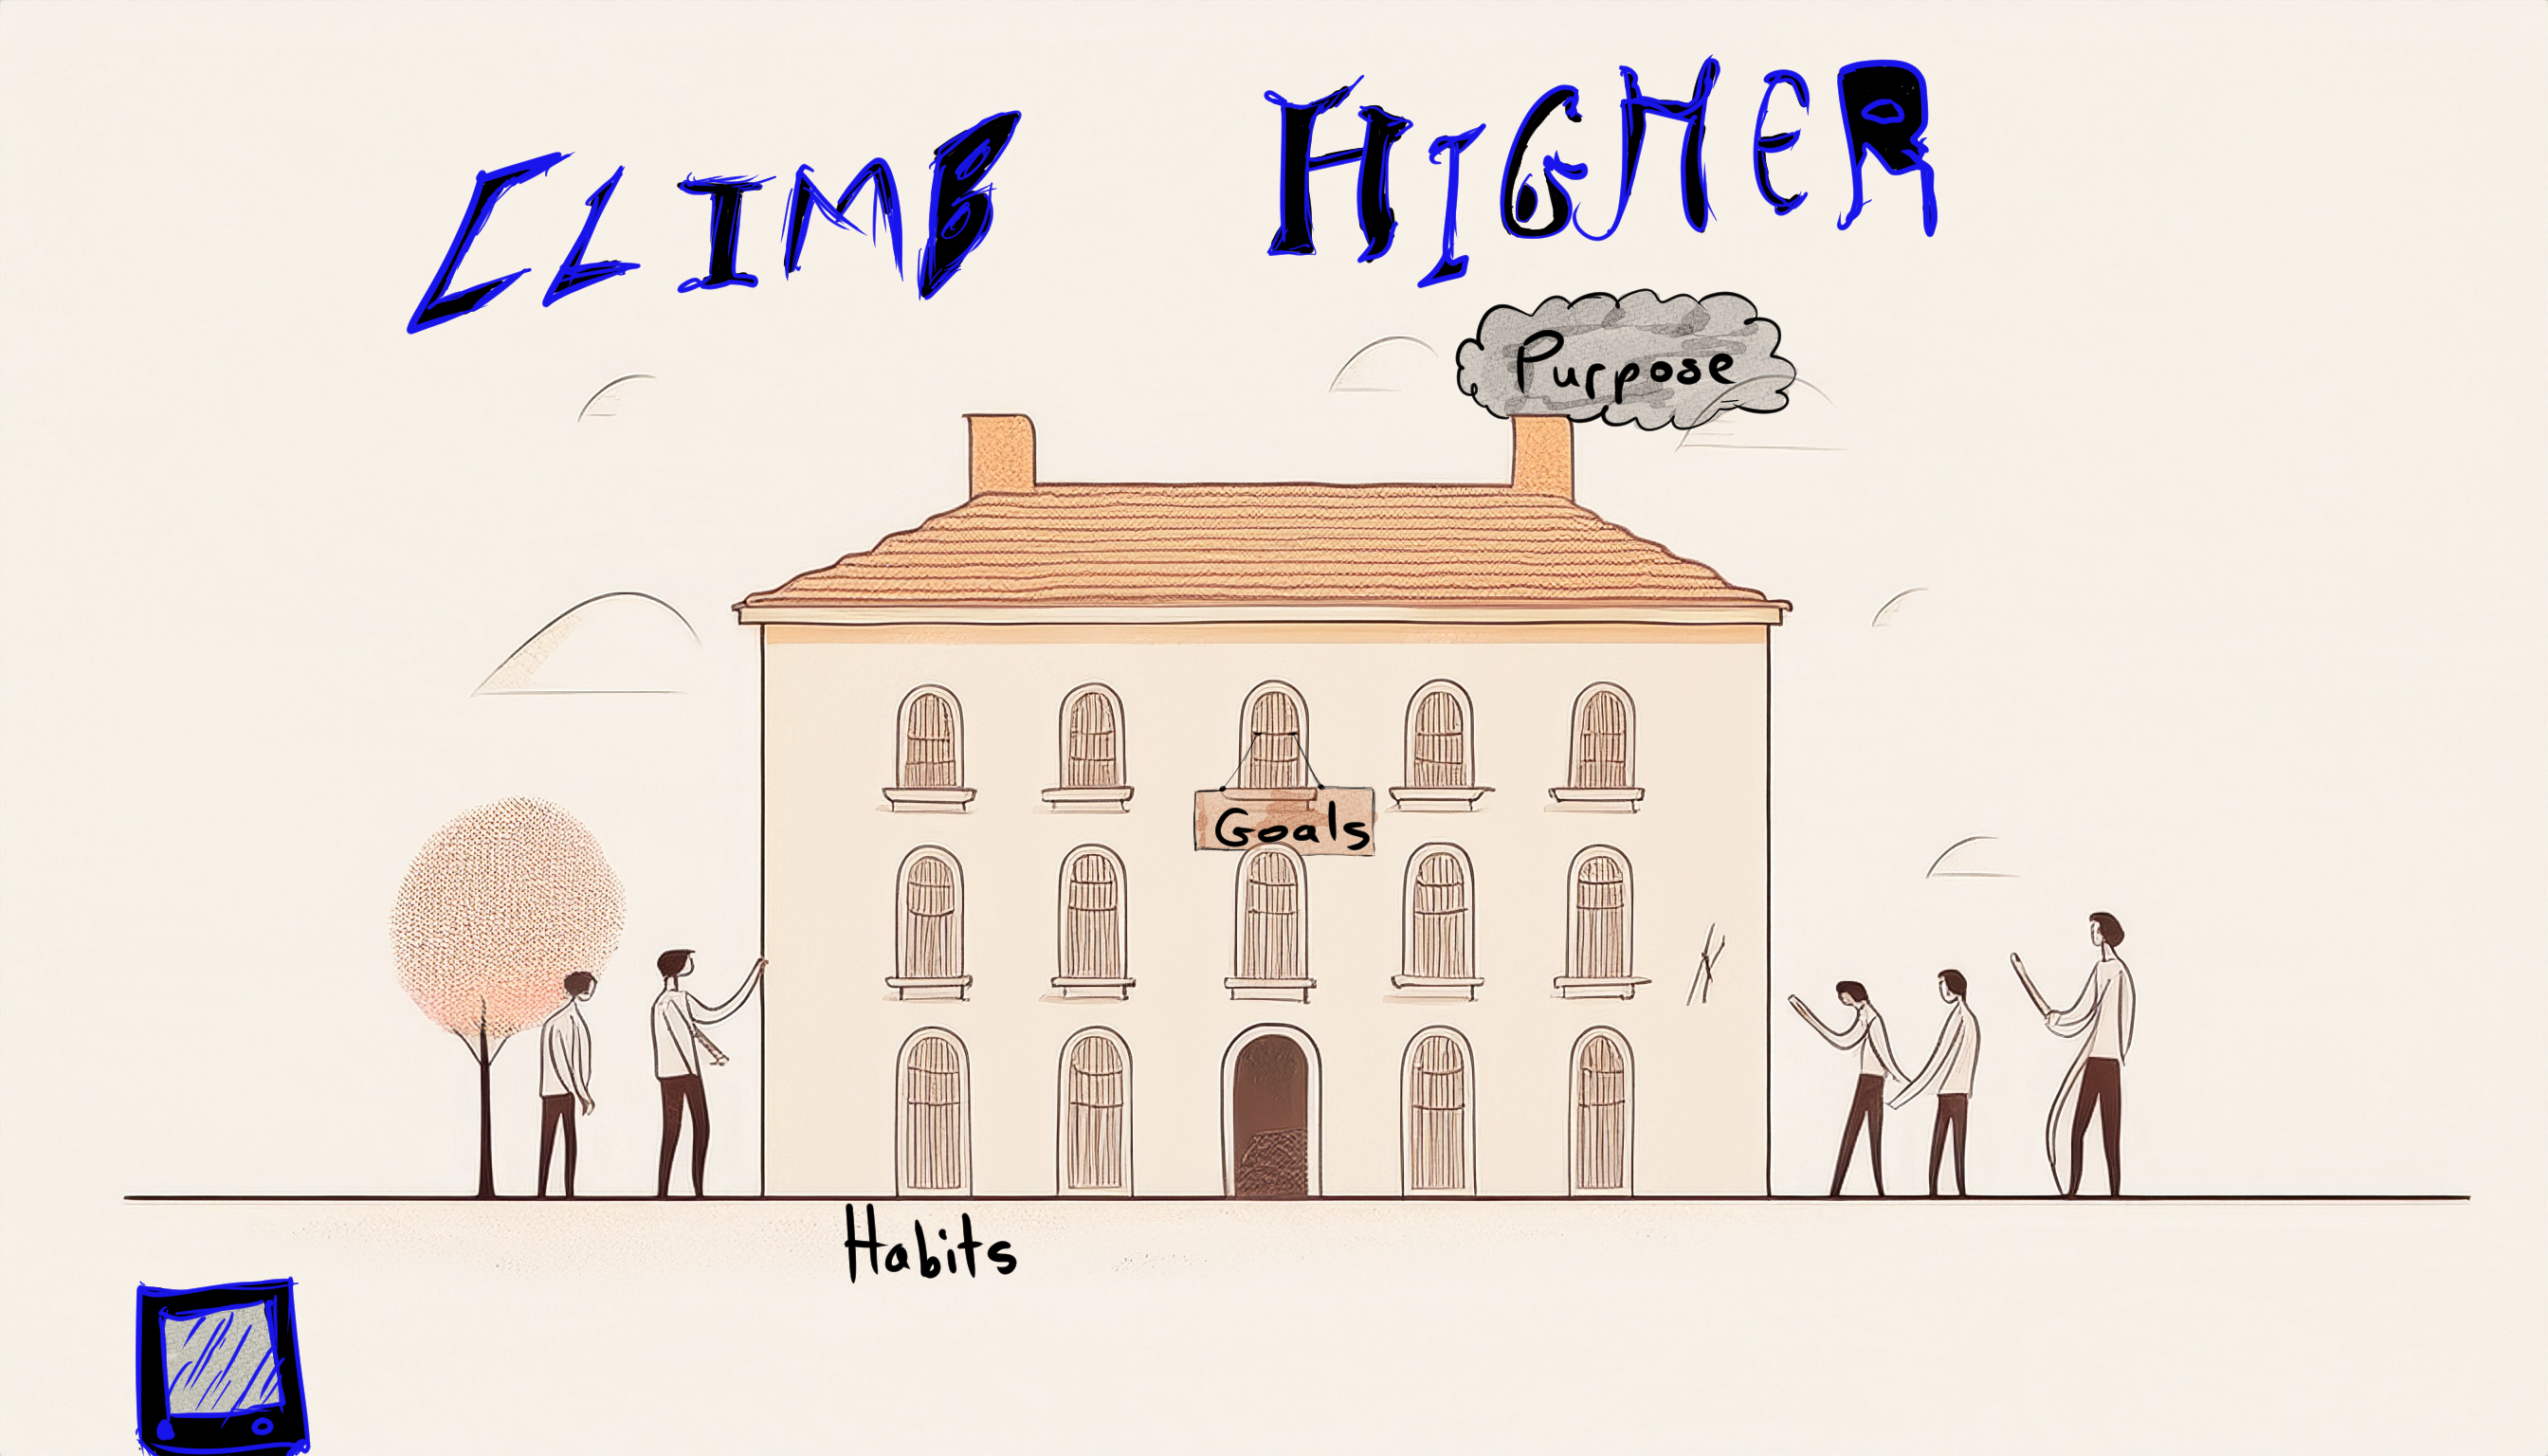 CLIMB HIGHER
Purpose
Goals
Habits